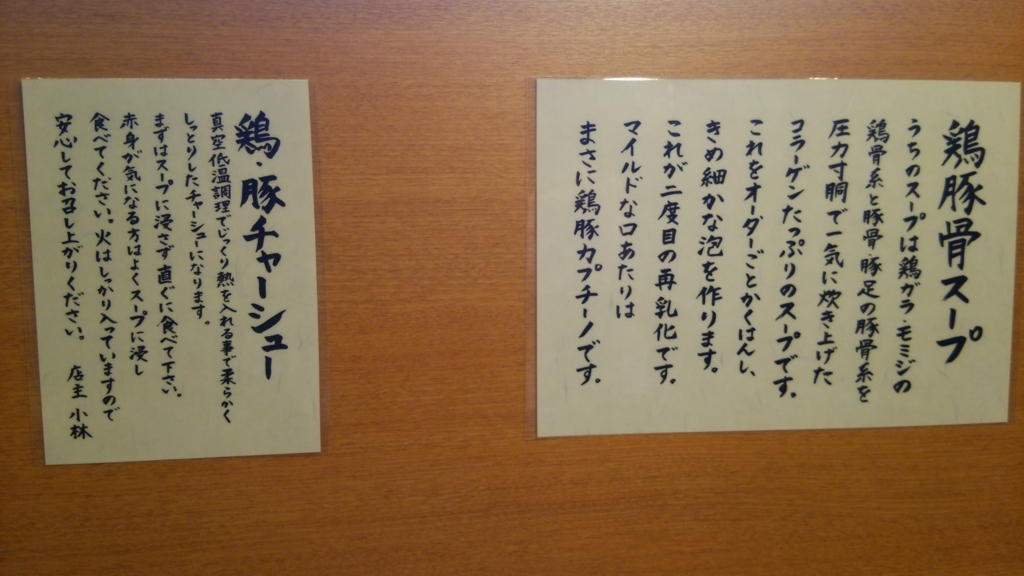 鶏豚骨スープ
うちのスープは鶏ガラ・モミジの
鶏骨系と豚骨・豚足の豚骨系を
圧力寸胴で一気に炊き上げた
コラーゲンたっぷりのスープです。
これをオーダーごとかくはんし、
きめ細かな泡を作ります。
これが二度目の再乳化です。
マイルドな口あたりは
まさに鶏豚カプチーノです。
鶏・豚チャーシュー
真空低温調理でじっくり熱を入れる事で柔らかく
しっとりしたチャーシューになります。
まずはスープに浸さず直ぐに食べて下さい。
赤身が気になる方はよくスープに浸し
食べてください。火はしっかり入っていますので
安心してお召し上がりください。
店主 小林